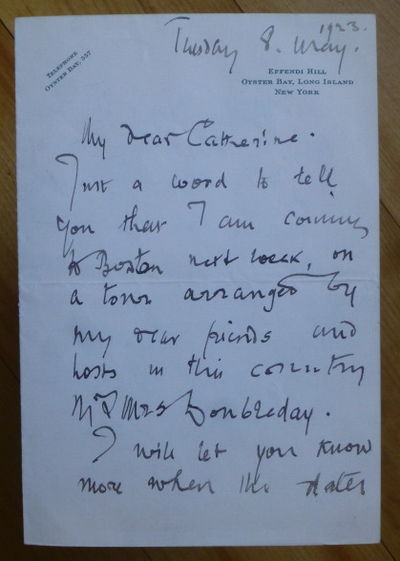 Tuesday 8. May. 1923.
TELEPHONE
OYSTER BAY, 557
EFFENDI HILL
OYSTER BAY, LONG ISLAND
NEW YORK
My dear Catherine.
Just a word to tell
you that I am coming
to Boston next week, on
a tour arranged by
my dear friends and
hosts in this country
Mr & Mrs Doubleday.
I will let you know
more when the dates